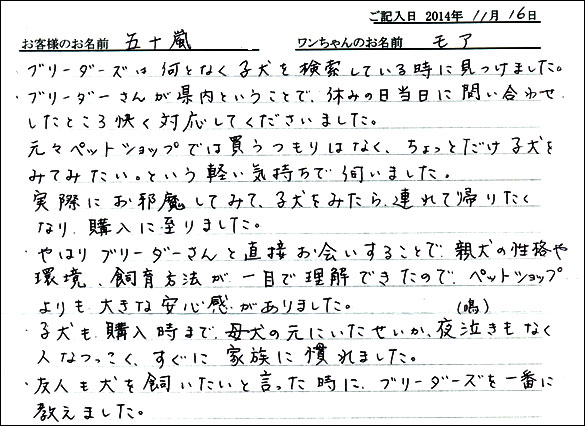 ご記入日 2014年 11月 16日
お客様のお名前 五十嵐 ワンちゃんのお名前 モア
・ブリーダーズは何となく子犬を検索している時に見つけました。
・ブリーダーさんが県内ということで、休みの日当日に問い合わせ
したところ快く対応してくださいました。
元々ペットショップでは買うつもりはなく、ちょっとだけ子犬を
みてみたい。という軽い気持ちで伺いました。
実際にお邪魔してみて、子犬をみたら、連れて帰りたく
なり、購入に至りました。
・やはりブリーダーさんと直接お会いすることで、親犬の性格や
環境、飼育方法が一目で理解できたので、ペットショップ
よりも大きな安心感がありました。
(鳴)
・子犬も購入時まで、母犬の元にいたせいか、夜泣きもなく
人なつっこく、すぐに家族に慣れました。
・友人も犬を飼いたいと言った時に、ブリーダーズを一番に
教えました。